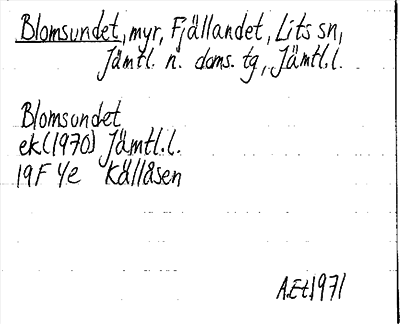 Blomsundet, myr, Fjällandet, Lits sn,
Jämtl. n. doms. tg, Jämtl.l.
Blomsundet
ek(1970) Jämtl.l.
19F 4e Källåsen
A.Et.1971